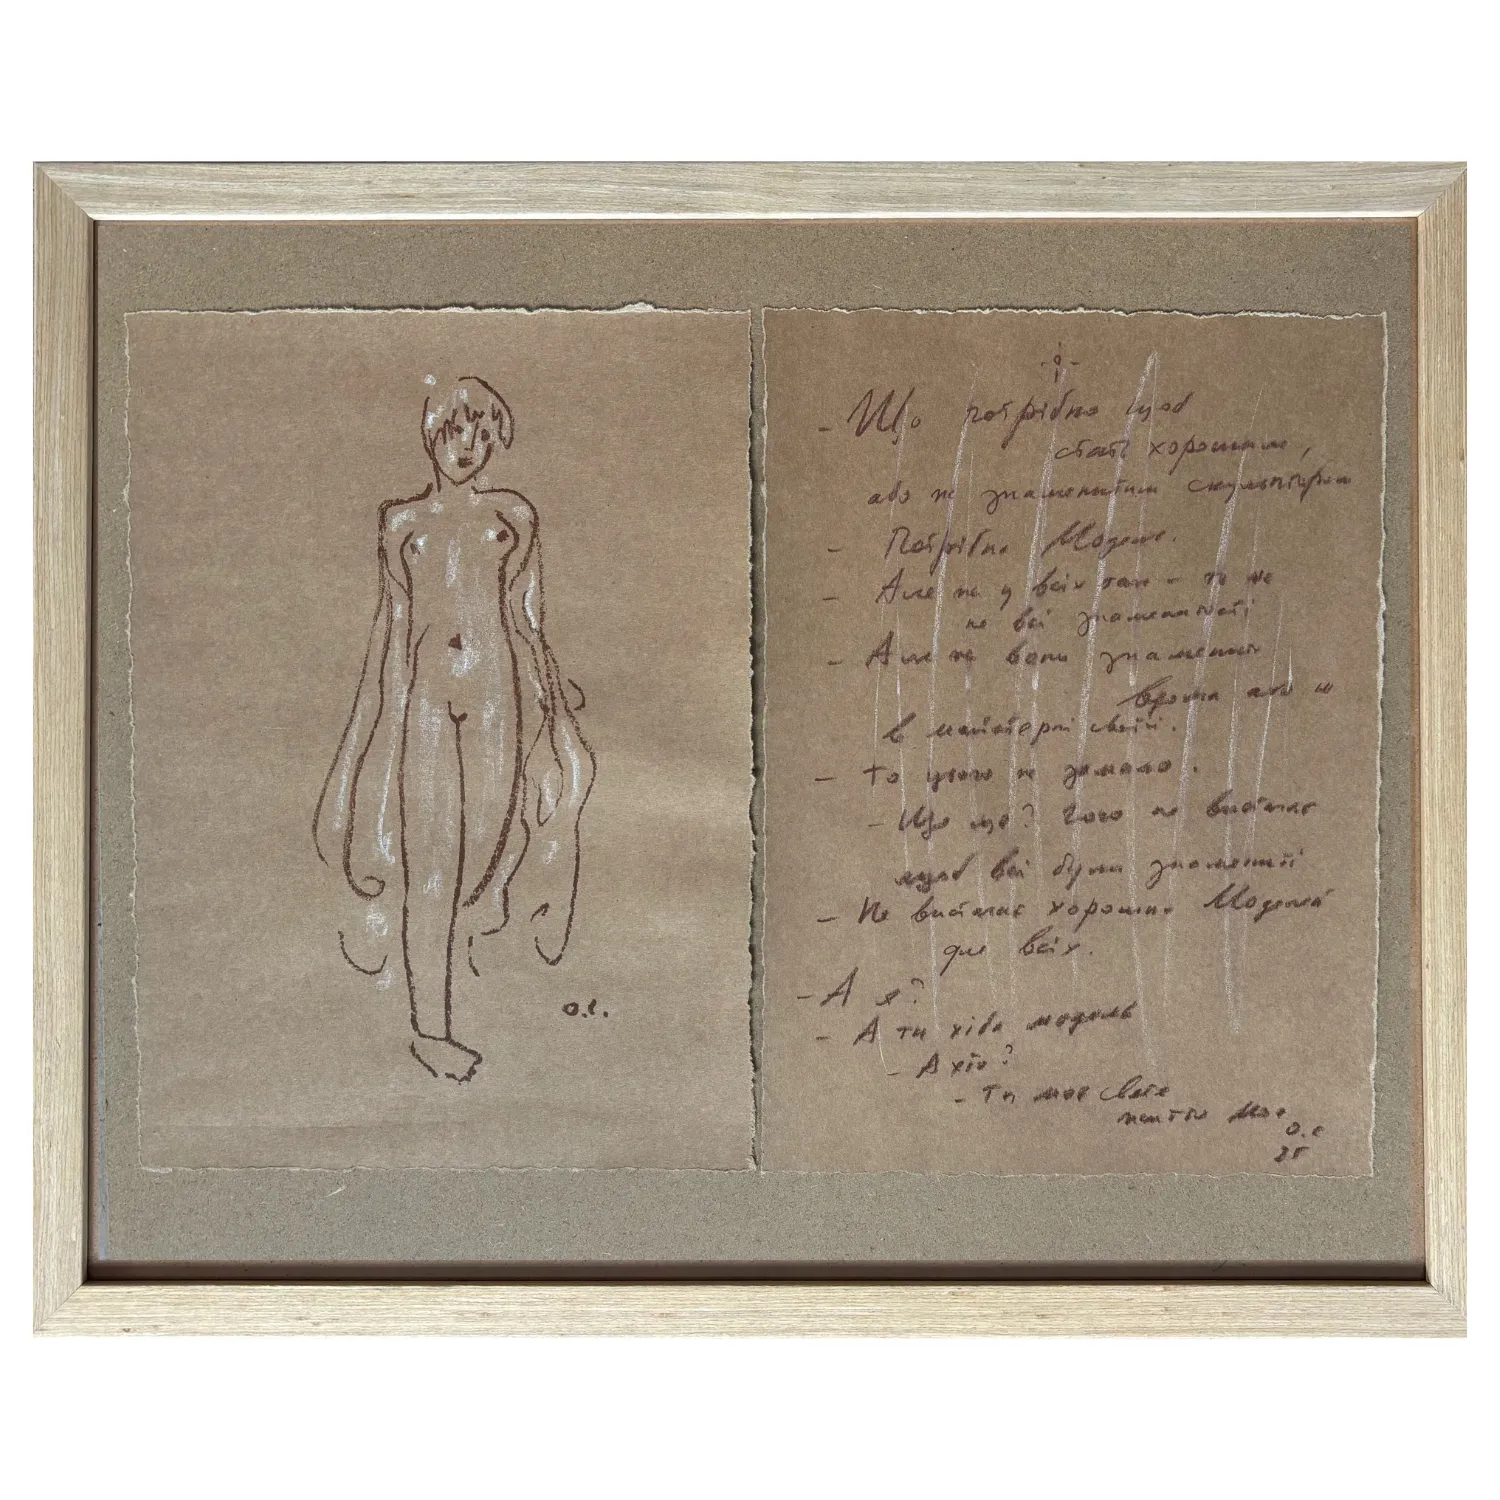 о.с.
- Що потрібно щоб
стать хорошим,
або не знаменитим скульптором
- Потрібна Модель.
- Але не у всіх так - то не
не всі знамениті
- Але не вони знамениті
в майстерні своїй.
- То цього не замало.
- Що ще? Чого не вистачає
щоб всі були знамениті
- Не вистачає хороших Моделей
для всіх.
- А я?
- А ти хіба модель
- А хто?
- Ти моє світе
життя моє
о.с
25